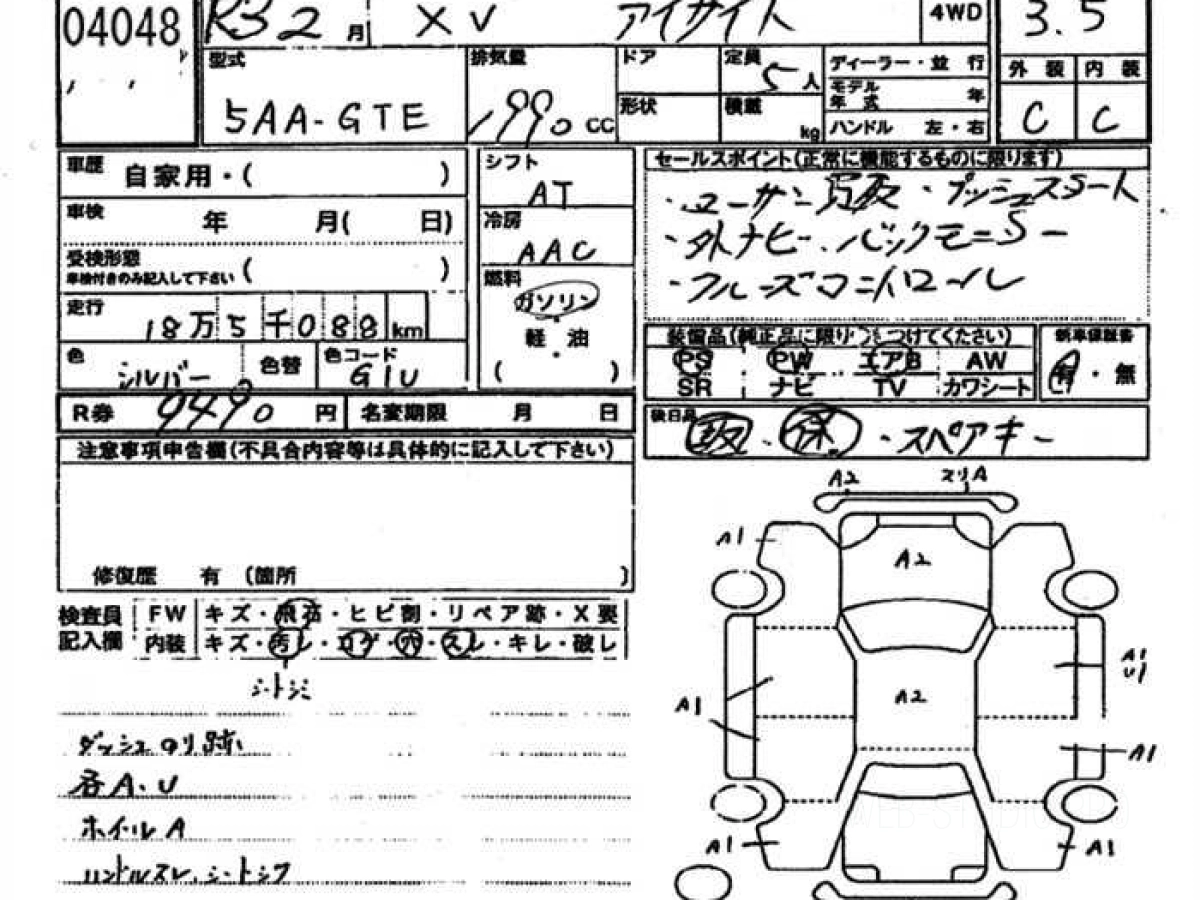 04048 R3 2月 XV アイサイト 4WD 3.5
型式 排気量 ドア 定員 5人 ディーラー・並 行 外装 内装
5AA-GTE 1990 cc 形状 積載 kg モデル年式 年 C C
ハンドル 左・右
車歴 自家用・( )
車検 年 月( 日)
受検形態 ( )
車検付きのみ記入して下さい
走行 18万5千088km
色 シルバー 色替 色コード G1U
R券 9490円 名変期限 月 日
シフト AT
冷房 AAC
燃料 ガソリン
軽・油
( )
セールスポイント(正常に機能するものに限ります)
・ユーザー買取・プッシュスタート
・外ナビ・バックモニター
・クルーズコントロール
装備品(純正品に限り○をつけてください) 新車保証書
PS PW エアB AW 有・無
SR ナビ TV カワシート
後日品 取・保・スペアキー
注意事項申告欄(不具合内容等は具体的に記入して下さい)
修復歴 有 (箇所 )
検査員 FW キズ・飛石・ヒビ割・リペア跡・X要
記入欄 内装 キズ・汚レ・コゲ・穴・スレ・キレ・破レ
シートシミ
ダッシュのり跡
各A.U
ホイールA
ハンドルスレ、シートシワ
A2 スリA
A1 A2
A1 A2 A1 U1
A1
A1 A1